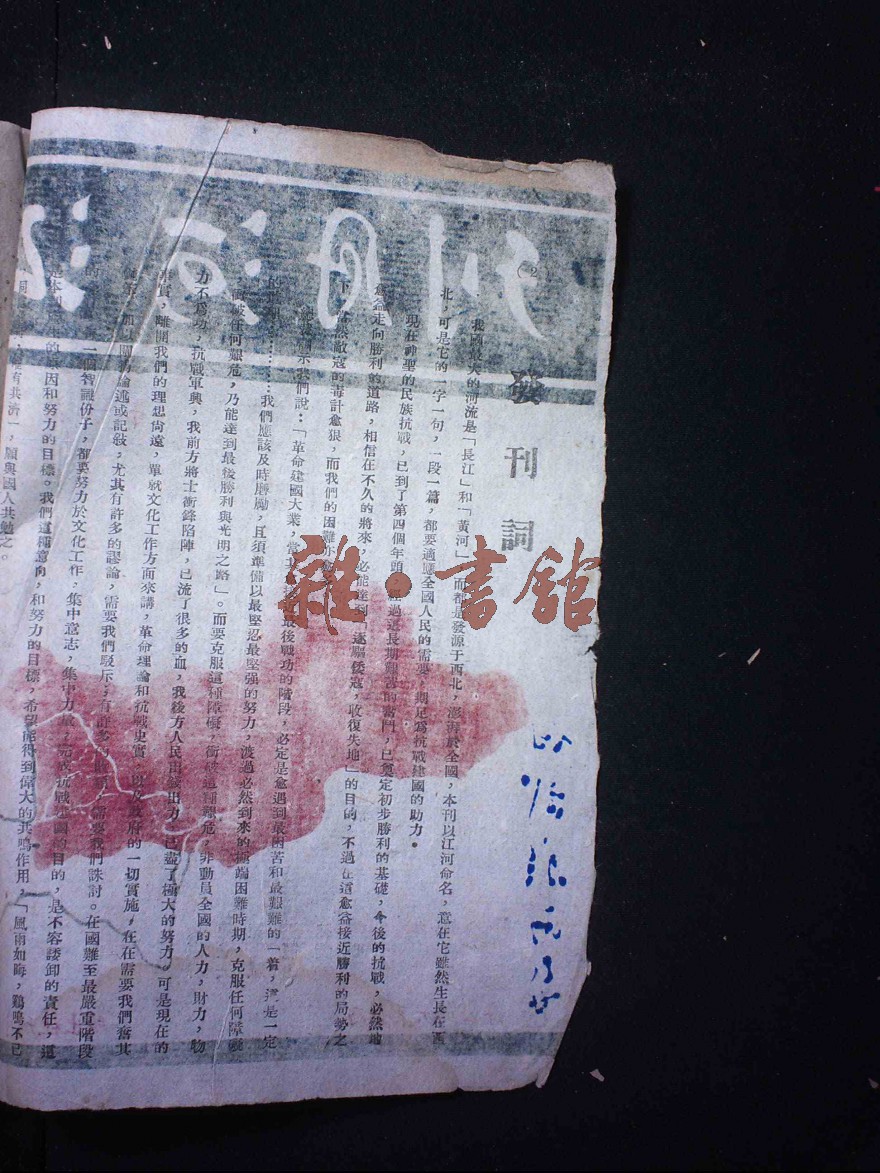 發刊詞
我國最大的河流是「長江」和「黃河」，而都是發源于西北，澎湃於全國，本刊以江河命名，意在它雖然生長在西
北，可是它的一字一句，一段一篇，都要適應全國人民的需要，期足爲抗戰建國的助力。
現在神聖的民族抗戰，已到了第四個年頭，經過這長期艱苦的奮鬥，已奠定初步勝利的基礎，今後的抗戰，必然地
愈益走向勝利的道路，相信在不久的將來，必能達到「逐驅倭寇，收復失地」的目的，不過在這愈益接近勝利的局勢之
下，當然敵寇的毒計愈狠，而我們的困難亦愈
示我們說：「革命建國大業，當其接近最後成功的階段，必定是愈遇到最困苦和最艱難的一着，這是一定
……我們應該及時磨勵，且須準備以最堅忍最堅强的努力，渡過必然到來的極端困難時期，克服任何障礙
衝破任何艱危，乃能達到最後勝利與光明之路」。而要克服這種障礙，衝破這種艱危，非動員全國的人力，財力，物
力不爲功，抗戰軍興，我前方將士衝鋒陷陣，已流了很多的血，我後方人民出錢出力，已盡了極大的努力，可是現在的
事實，離開我們的理想尙遠，單就文化工作方面來講，革命理論和抗戰史實，以及政府的一切實施，在在需要我們奮其
論述或記敍，尤其有許多的謬論，需要我們駁斥，有許多的，需要我們誅討。在國難至最嚴重階段
一個智識份子，都要努力於文化工作，集中意志，集中力量，完成抗戰建國的目的，是不容諉卸的責任，這
是本刊的原因和努力的目標。我們這種意向，和努力的目標，希望能得到偉大的共鳴作用，「風雨如晦，鷄鳴不已
有共濟」，願與國人共勉之。
雜·書館